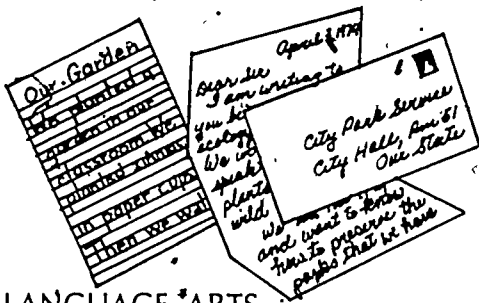 Our Garden
We planted a
garden in our
classroom. We
planted
in paper cups
Then we
April 1974
Dear Sir
I am writing to
you
ecology
We
speak
plants
wild
We
and want to know
how to preserve the
parks that we have
City Park Service
City Hall, Rm 61
Our State
LANGUAGE ARTS